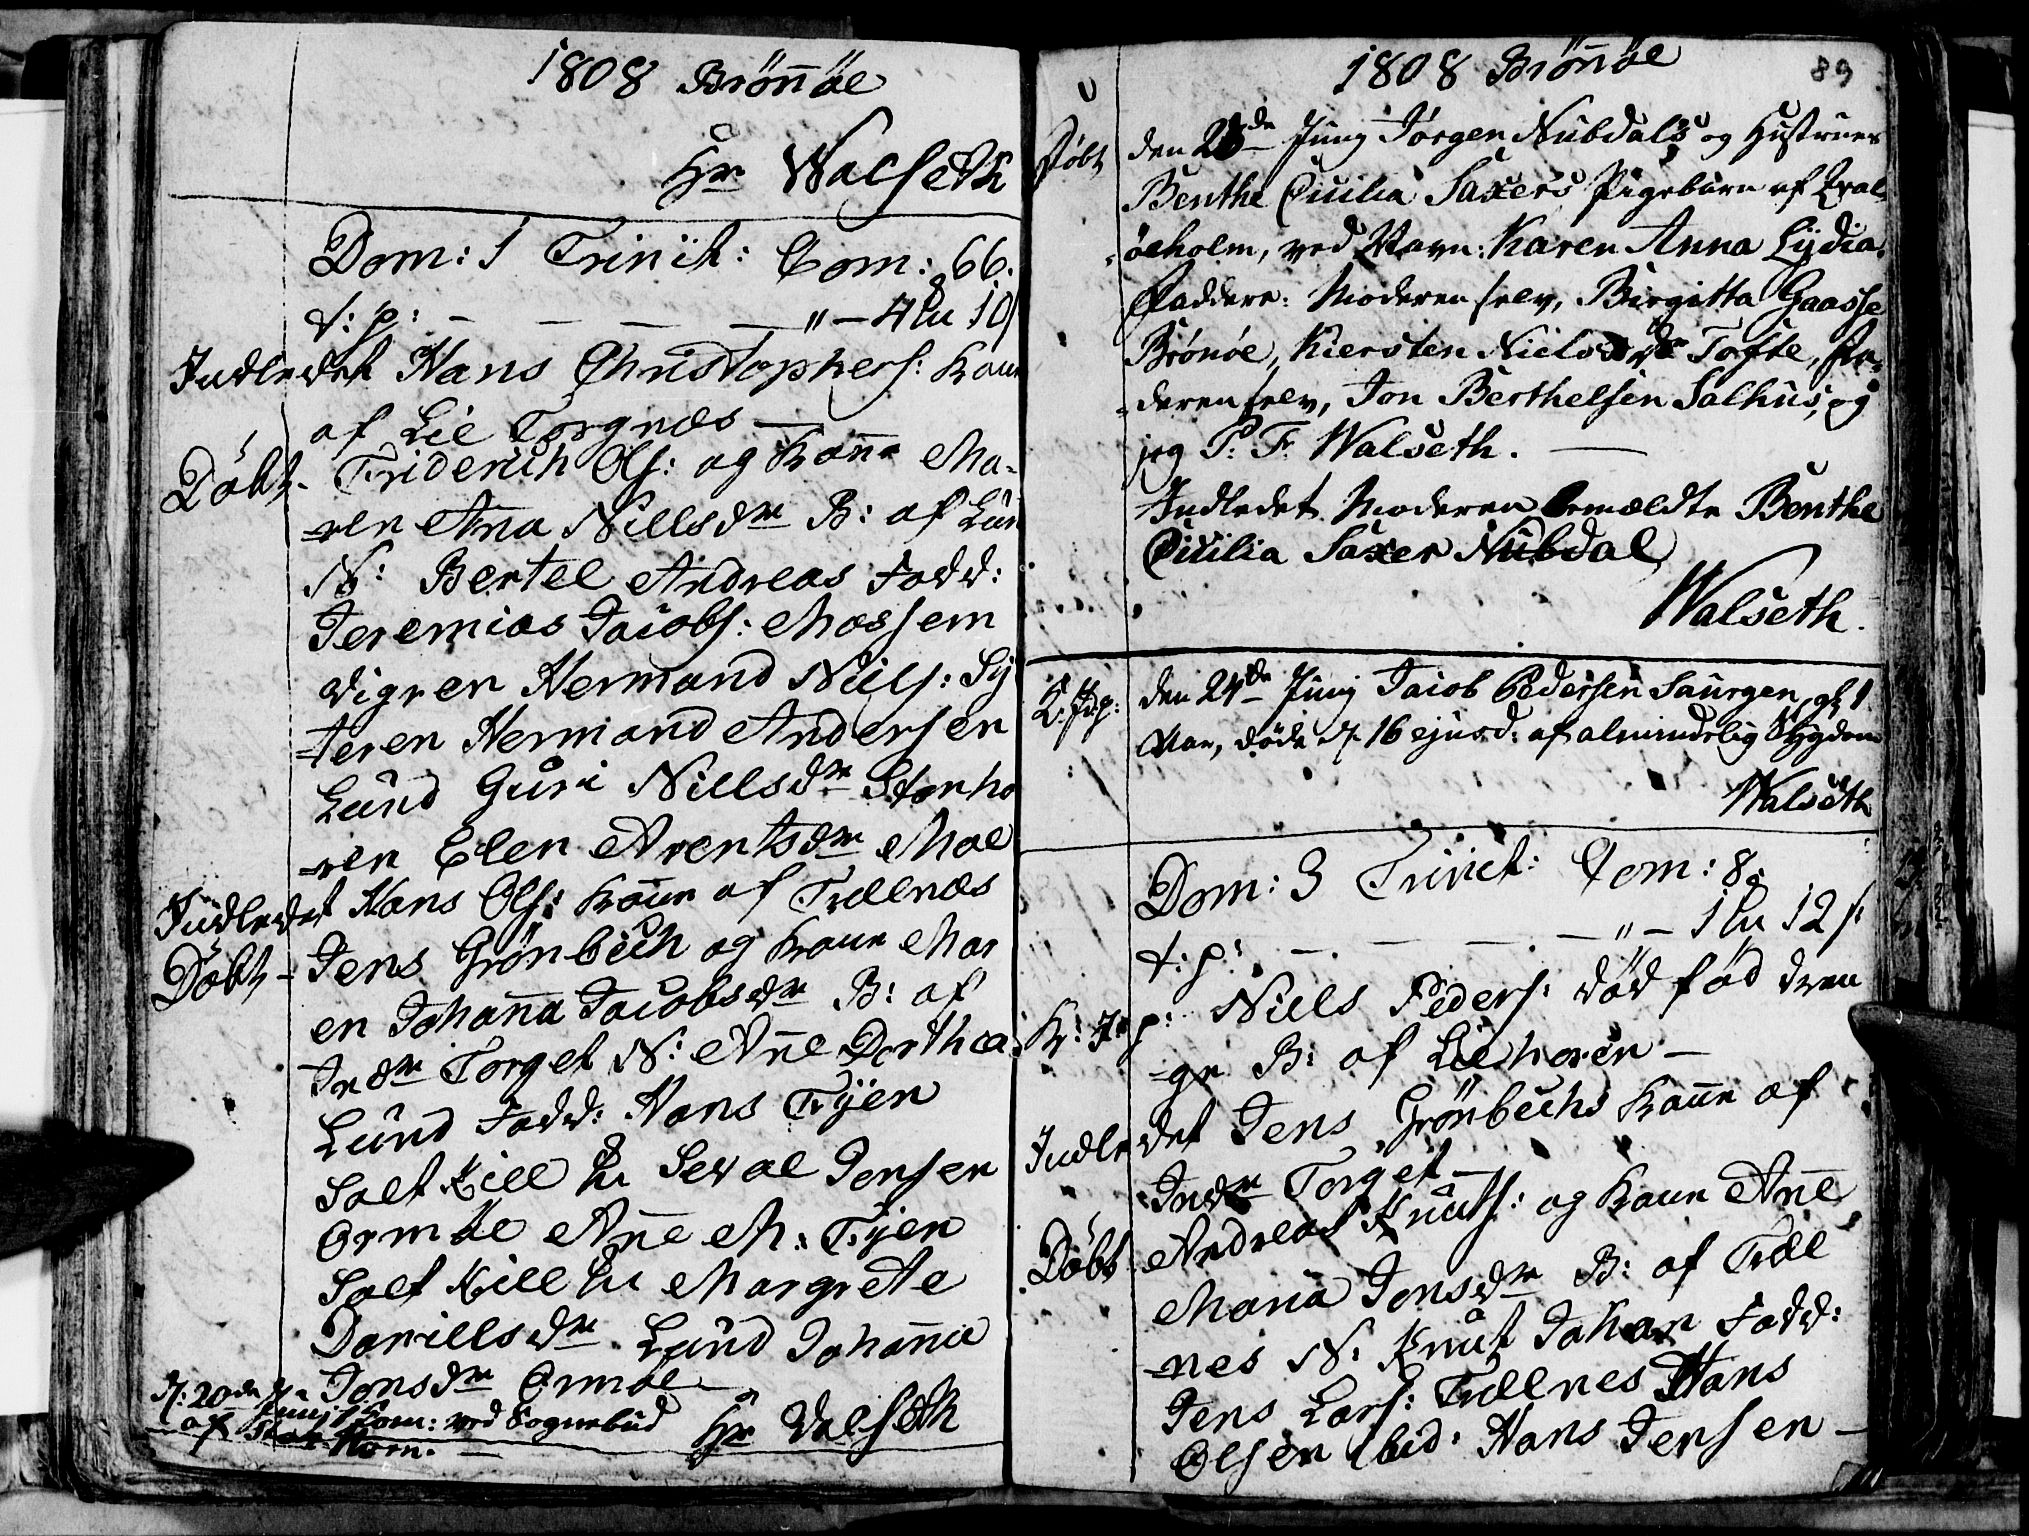 1808 Brönöe
Hr Walseth
Dom: 1 Trinit: Com: 66.
t: p: — — — — " — 4 Lu 10
Indledet Hans Christophers: Kone
af Lie Torgnæs —
Döbt - Friderich Ols: og Kone Ma-
-ren Ana Nillsdr B: af Lun
N: Bertel Andreas Fadd:
Jeremias Jacobs: Mossem
vigren Hermand Niels: Sy
-teren Hermand Andersen
Lund Guri Nillsdr Storho
-ren Elen Arentsdr Moe
Indledet Hans Ols: Kone af Trælnæs
Döbt - Jens Grönbech og Kone Mar
en Johanna Jacobsdr B: af
Indr Torget N: Ane Dorthea
Lund Fadd: Hans Tijen
Salt Kill Lu Sewal Jonsen
Ormöe Ane M: Tijen
Salt Kill Lu Margrete
Danillsdr Lund Johanna
Jonsdr Ormöe —
d: 20de Junij 1 Com: ved Sognebud
af Stor Horn. —
Hr Valseth
1808 Brönöe
89
Döbt
den 26de Junij Jörgen Nubdals og Hustrues
Benthe Cicilia Saxers Pigebarn af Qval-
-öeholm, ved Navn: Karen Anna Lydia.
Faddere: Moderen selv, Birgitta Gaasse
Brönöe, Kiersten Nielsdr Tofte, Fa-
-deren selv, Jon Berthelsen Salhus, og
jeg P: F: Walseth. —
Indledet Moderen bemældte Benthe
Cicilia Saxer Nubdal
Walseth.
K: J: p: den 24de Junij Jacob Pedersen Saurgen, gl 1
Aar, døde d. 16 ejusd: af almindelig Sygdom
Walseth
Dom: 3 Trinit: Com: 8.
t: p: — — — — " — 1 Lu 12 s:
K: J: p: Niels Peders: död föd dren
-ge B: af Liehoren —
Indledet Jens Grönbechs Kone af
Indr Torget —
Döbt Andreas Knuts: og Kone Ane
Maria Jonsdr B: af Træl
-nes N: Knut Johan Fadd:
Jens Lars: Trælnes Hans
Olsen ibid: Hans Jensen —